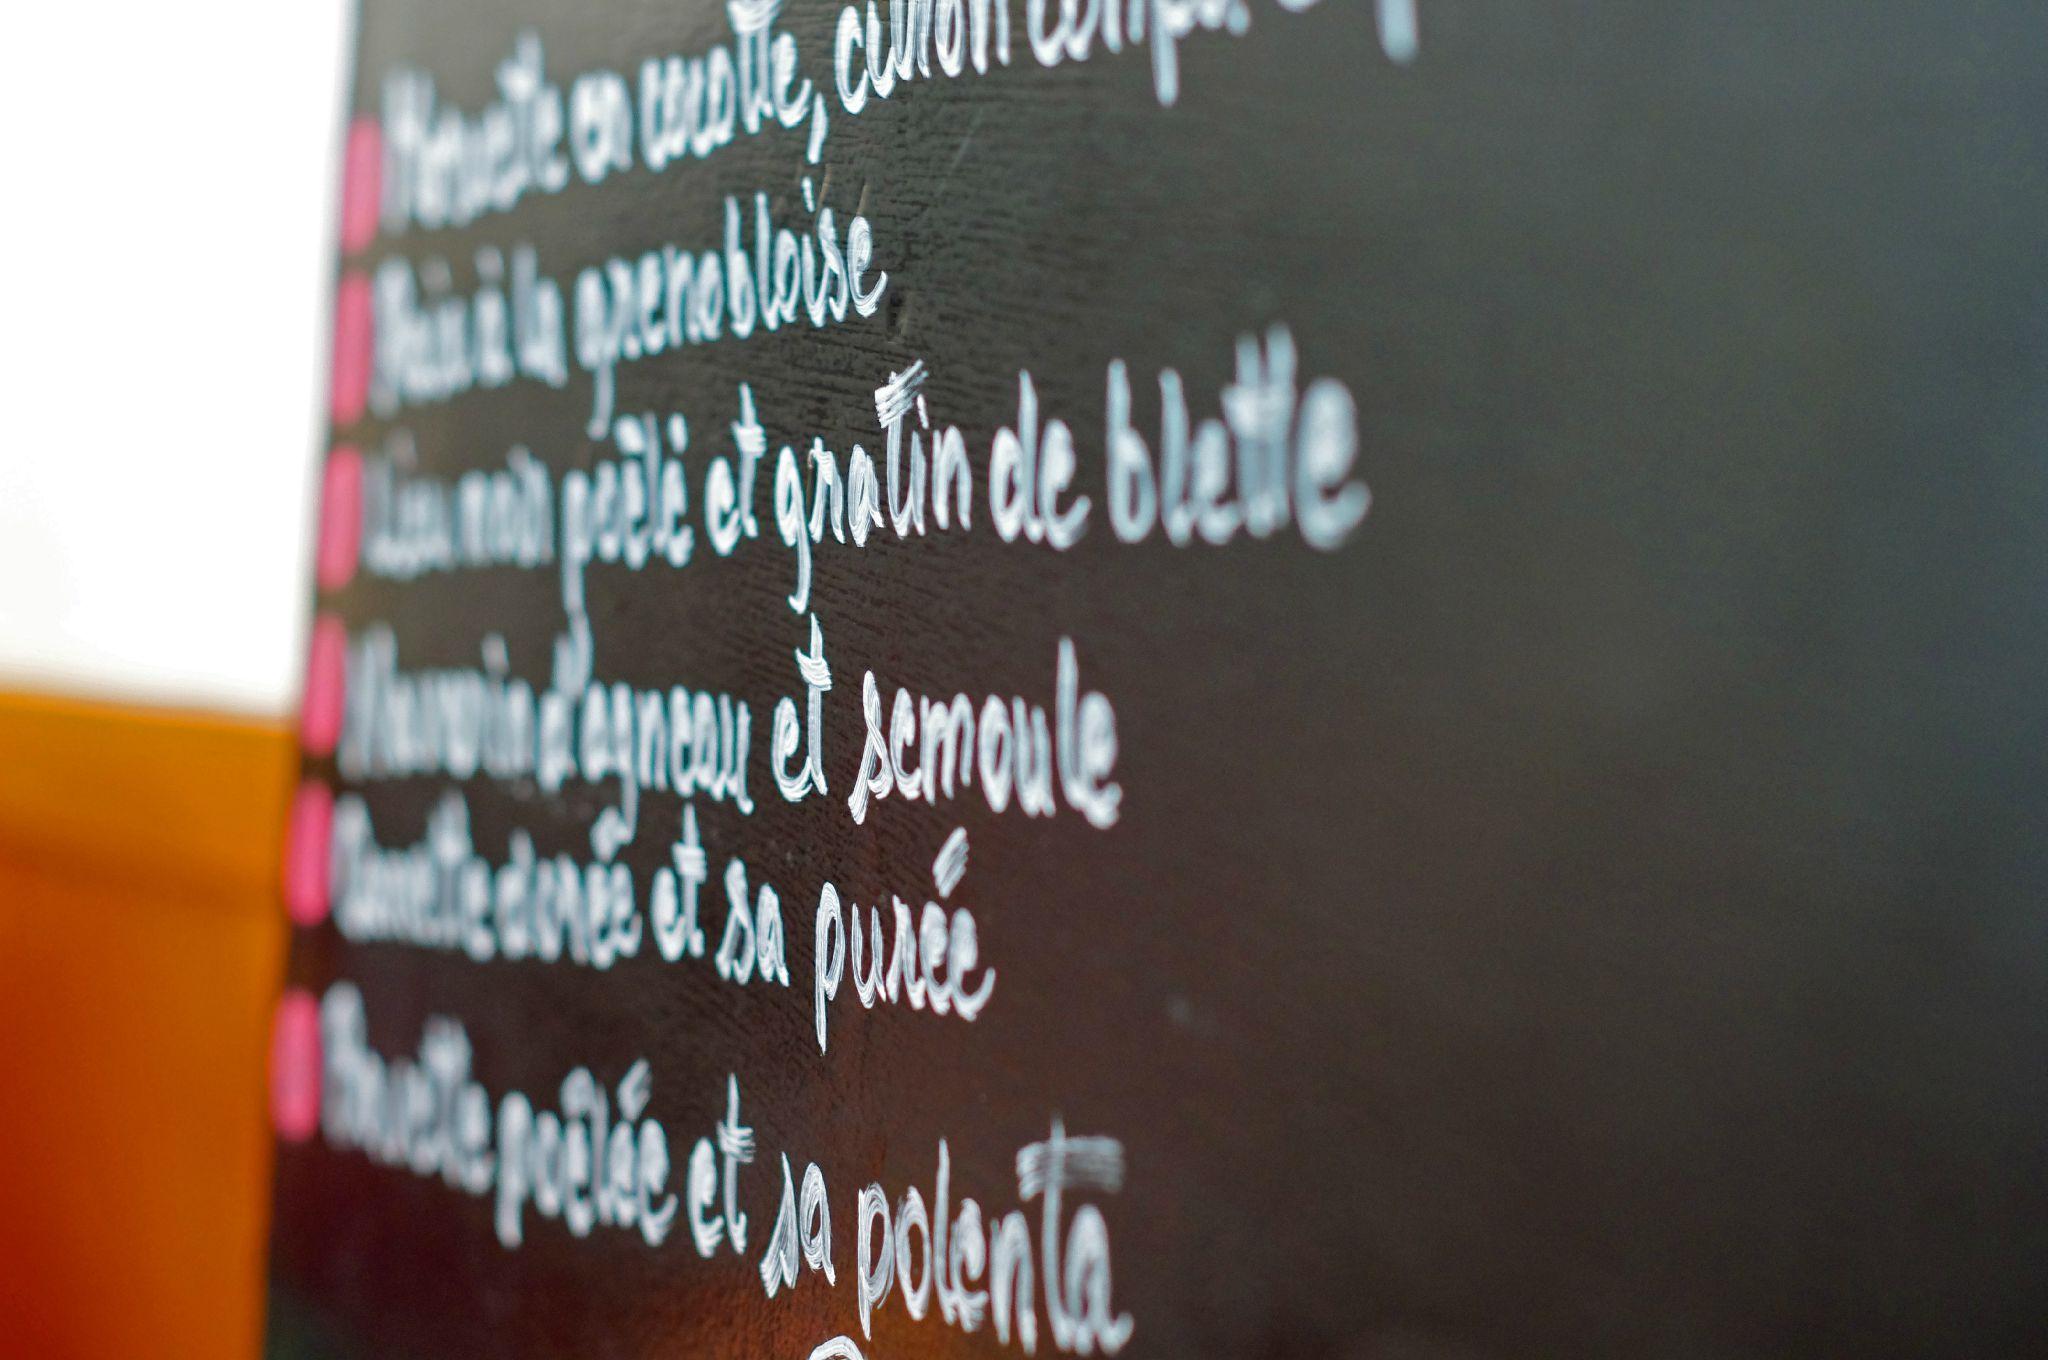 en cocotte, citron
à la grenobloise
Lieu noir poêlé et gratin de blette
d'agneau et semoule
dorée et sa purée
poêlée et sa polenta